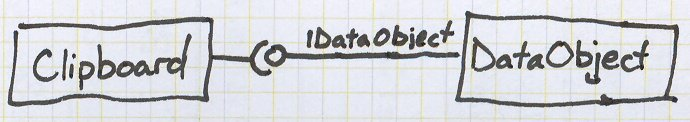 Clipboard
IDataObject
DataObject